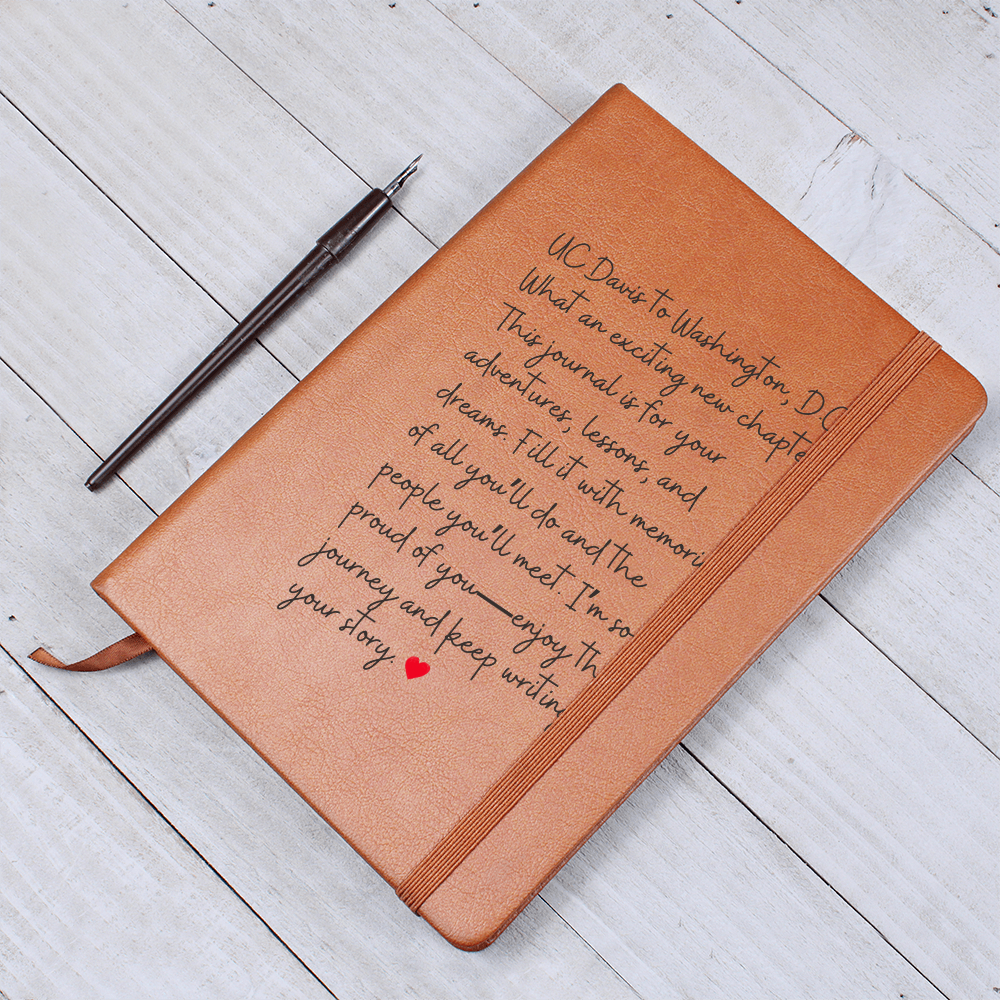 UC Davis to Washington, D.C
What an exciting new chapte
This journal is for your
adventures, lessons, and
dreams. Fill it with memori
of all you'll do and the
people you'll meet. I'm so
proud of you—enjoy th
journey and keep writing
your story. ❤